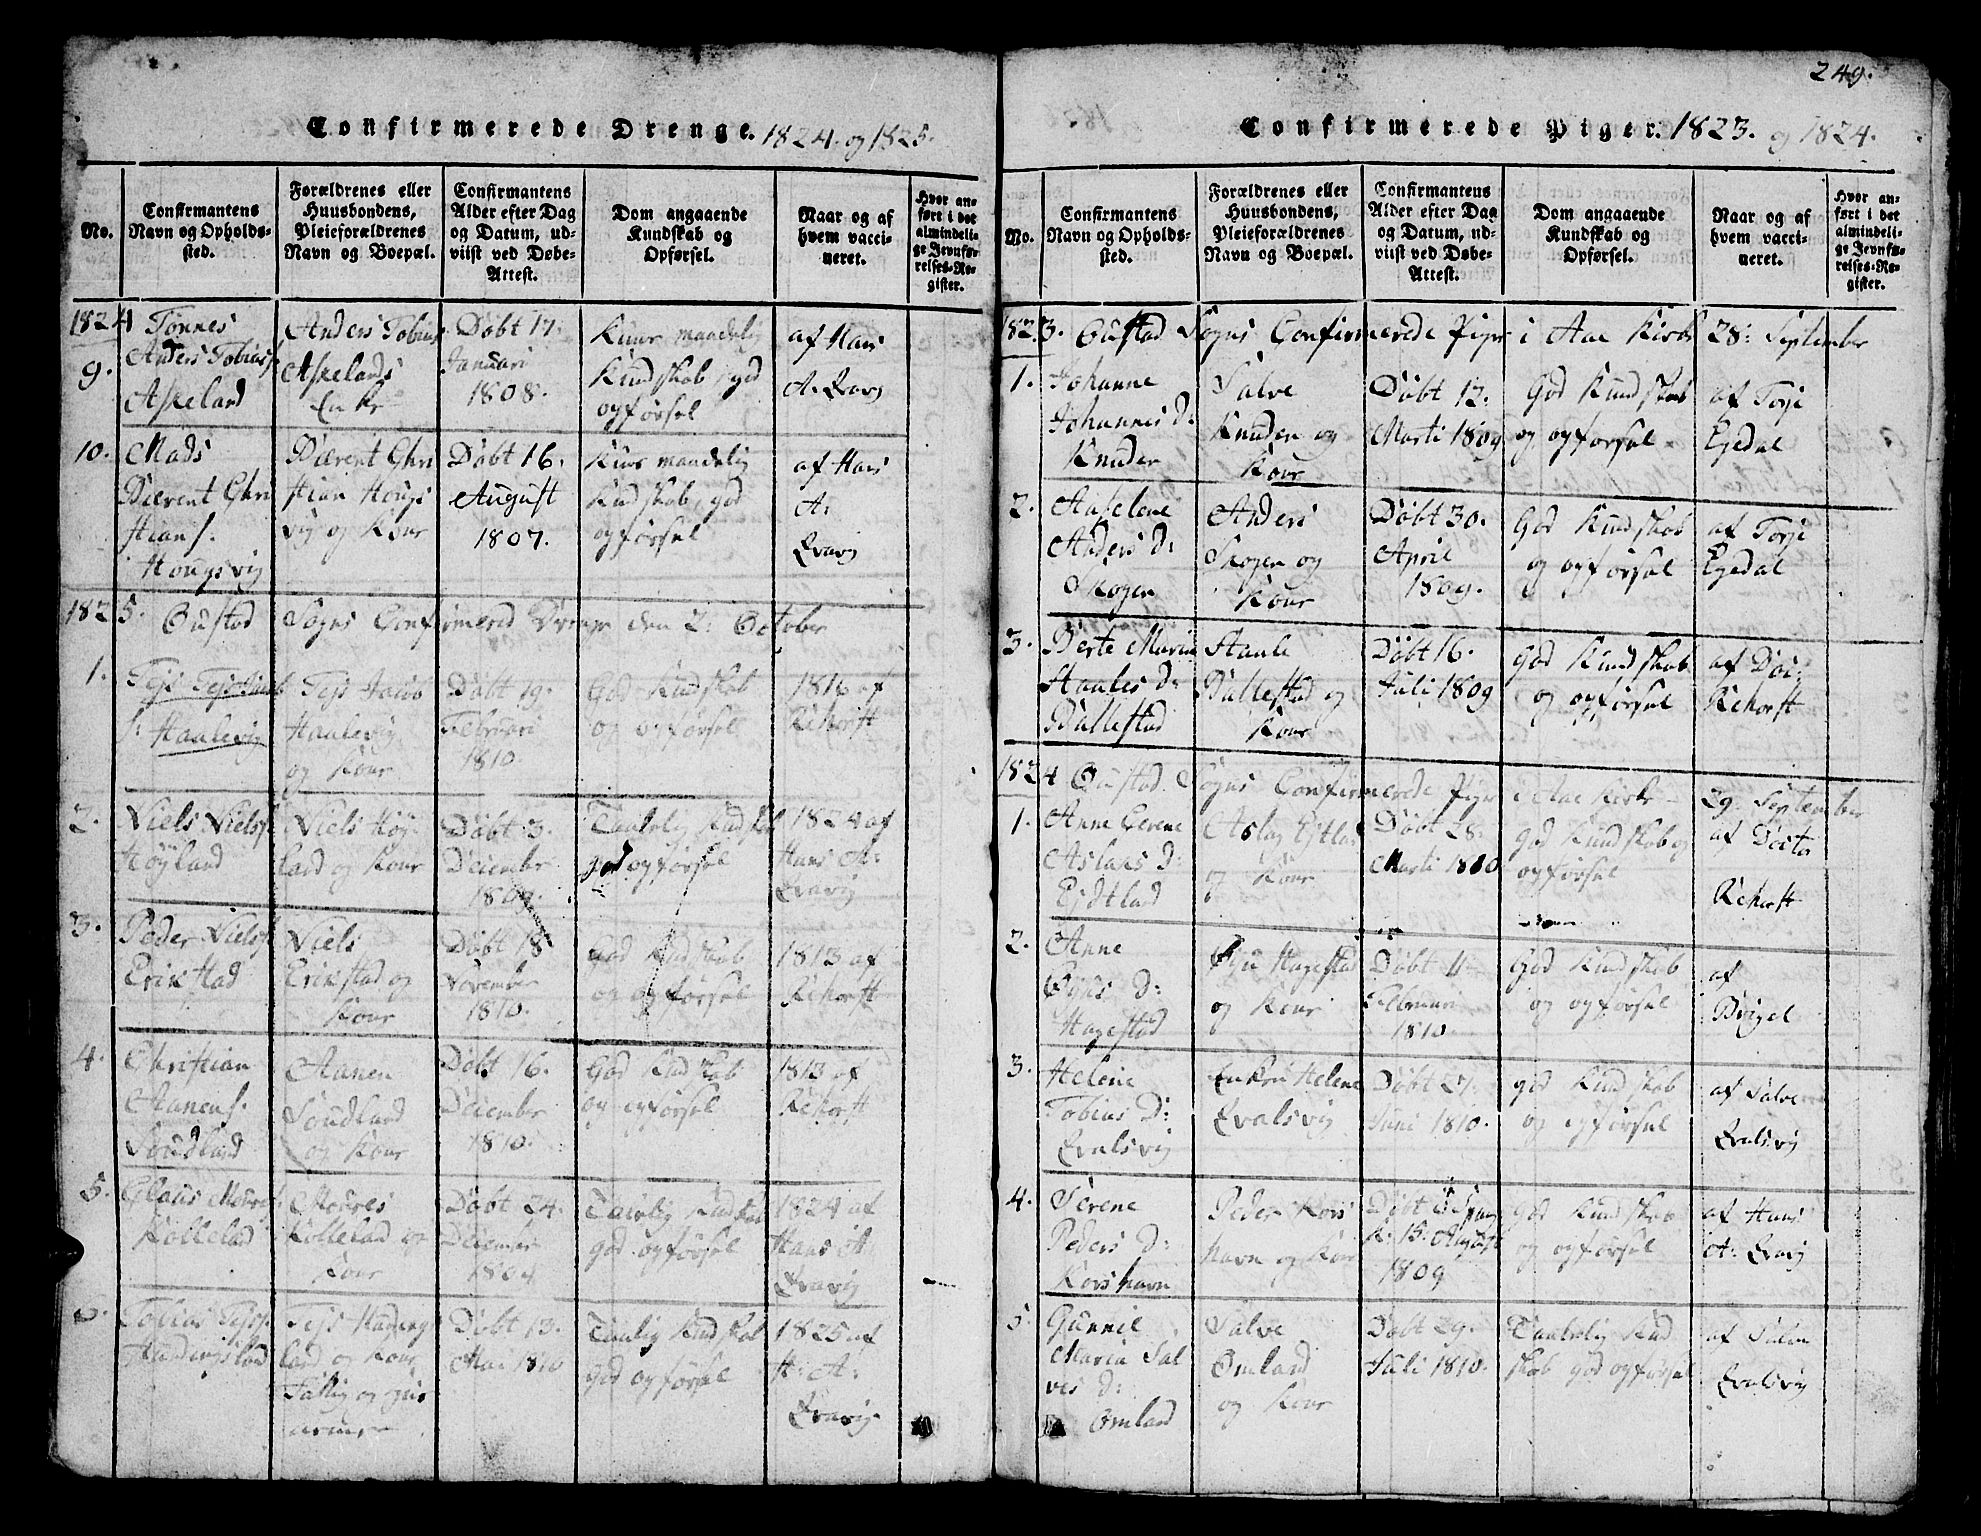 Confirmerede Drenge. 1824. og 1825.
No.
Confirmantens
Navn og Opholds-
sted.
Forældrenes eller
Huusbondens,
Pleieforældrenes
Navn og Boepæl.
Confirmantens
Alder efter Dag
og Datum, ud-
viist ved Døbe-
Attest.
Dom angaaende
Kundskab og
Opførsel.
Naar og af
hvem vacci-
neret.
Hvor an-
ført i det
almindeli-
ge Jevnfø-
relses-Re-
gister.
1824
9.
Tønnes
Anders Tobias
Askeland
Anders Tobias
Askelands
Enke
Døbt 17.
Januari
1808.
maadelig
Kundskab, god
opførsel
af Hans
A.
10.
Mads
Bærent Chri
stians.
Hougsvig
Bærent Chri
stian Hougs
vig og Kone
Døbt 16.
August
1807.
maadelig
Kundskab, god
opførsel
af Hans
A:
1825. Oustad Sogns Confirmered Drenge den 2: October
1.
Tejs Tejs
Haalevig
Tejs Jacob
Haalevig
og Kone
Døbt 19.
Februari
1810.
God Kundskab
og opførsel
1816 af
Rehorft
2.
Niels Niels
Høyland
Niels Høy-
land og Kone
Døbt 3.
December
1809.
Taalelig Kundskab
god opførsel
1824 af
Hans A:
3.
Peder Niels
Erikstad
Niels
Erikstad og
Kone
Døbt 18
November
1810.
God Kundskab
og opførsel
1813 af
Rehorft
4.
Christian
Aanens.
Soudland
Aanen
Soudland
og Kone
Døbt 16.
December
1810.
God Kundskab
og opførsel
1813 af
Rehorft
5.
Claus
Kollelad
Kollelad og
Kone
Døbt 24.
December
Taalelig Kundskab
god opførsel
1824 af
Hans A:
6.
Tobias Tejs
Tejs
land og Kone
Døbt 13.
Mai 1810
Taalelig Kundskab
god opførsel
1825 af
H: A:
249.
Confirmerede Piger. 1823. og 1824.
No.
Confirmantens
Navn og Opholds-
sted.
Forældrenes eller
Huusbondens,
Pleieforældrenes
Navn og Boepæl.
Confirmantens
Alder efter Dag
og Datum, ud-
viist ved Døbe-
Attest.
Dom angaaende
Kundskab og
Opførsel.
Naar og af
hvem vacci-
neret.
Hvor an-
ført i det
almindeli-
ge Jevnfø-
relses-Re-
gister.
1823. Oustad Sogns Confirmerede Piger i Aae Kirke 28: September
1.
Johanne
Johannes D:
Knuden
Salve
Knuden og
Kone
Døbt 12.
Marti 1809
God Kundskab
og opførsel
af Torje
Egedal
2.
Aaselene
Anders D:
Skogen
Anders
Skogen og
Kone
Døbt 30.
April
1809.
God Kundskab
og opførsel
af Torje
Egedal
3.
Berte Maria
Staales D:
Ballestad
Staale
Ballestad og
Kone
Døbt 16.
Juli 1809
God Kundskab
og opførsel
af Doc:
Rehorft
1824 Oustad Sogns Confirmerede Piger i Aae Kirke 29. September
1.
Anne Serene
Aslaks D:
Eidtland
Aslag
og Kone
Døbt 28.
Marti 1810
God Kundskab og
opførsel
af Docto
Rehorft
2.
Anne
D:
Hagestad
Hagestad
og Kone
Døbt 11
Februari
1810
God Kundskab
og opførsel
af
3.
Helene
Tobias D:
Qvalsvig
Enken Helene
Qvalsvig
Døbt 27.
Juni 1810.
God Kundskab
og opførsel
af Salve
Qvalsvig
4.
Serene
Peders D:
Korshavn
Peder Kors
havn og Kone
Døbt
August
1809
God Kundskab
og opførsel
af Hans
A:
5.
Gunnil
Maria Sal
ves D:
Omland
Salve
Omland
og Kone
Døbt 29.
Juli 1810.
Taalelig Kund
skab god opførsel
af Salve
Qvalsvig